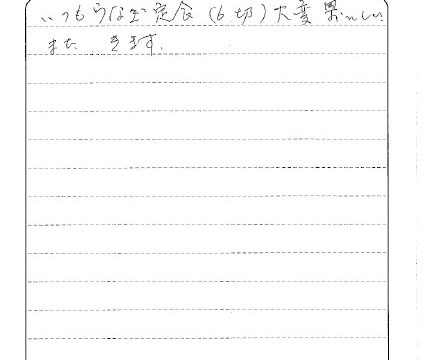 いつもうなぎ定食(6切)大変美いしい
また、きます。